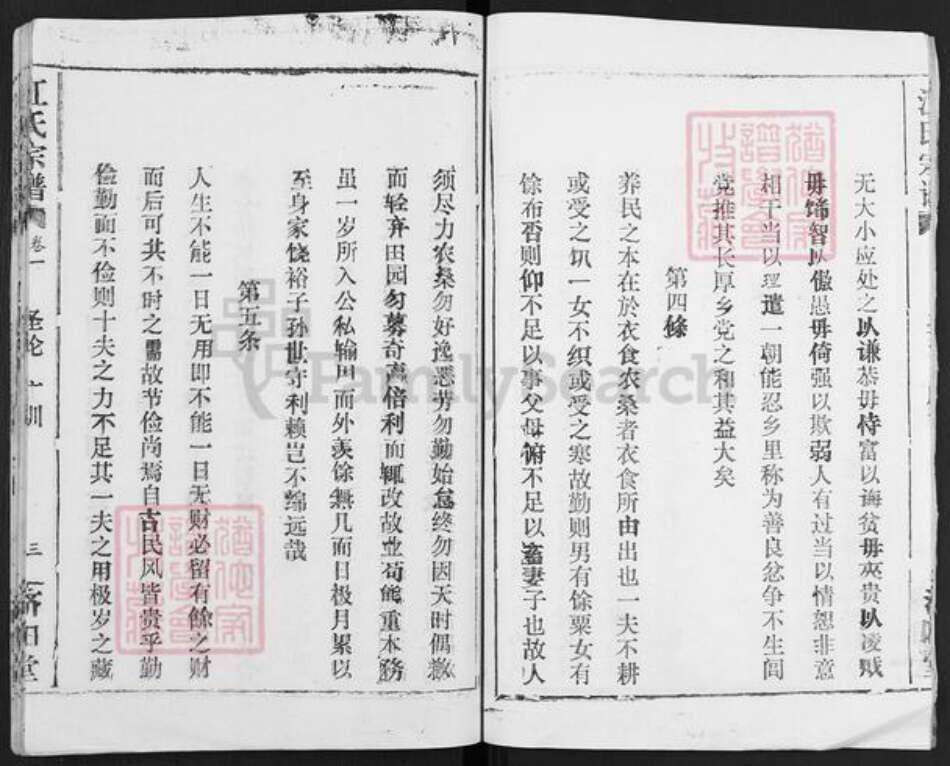 无大小应处之以谦恭毋恃富以诲贫毋夾贵以凌贱
毋饰智以傲愚毋倚强以欺弱人有过当以情恕非意
相干当以理遣一朝能忍乡里称为善良忿争不生闾
党推其长厚乡党之和其益大矣
第四條
养民之本在於衣食农桑者衣食所由出也一夫不耕
或受之饥一女不织或受之寒故勤则男有馀粟女有
馀布否则仰不足以事父母俯不足以畜妻子也故人
须尽力农桑勿好逸恶劳勿勤始怠终勿因天时偶
而轻弃田园勿慕奇赢倍利而輒改故业苟能重本務
虽一岁所入公私输用而外羡馀無几而日极月累以
至身家饶裕子孙世守利赖岂不绵远哉
第五条
人生不能一日无用即不能一日无财必留有餘之财
而后可共不时之需故节俭尚焉自古民风皆贵乎勤
俭勤而不俭则十夫之力不足其一夫之用极岁之藏
江氏宗譜 卷一 圣论广训 三 济阳堂
FamilySearch